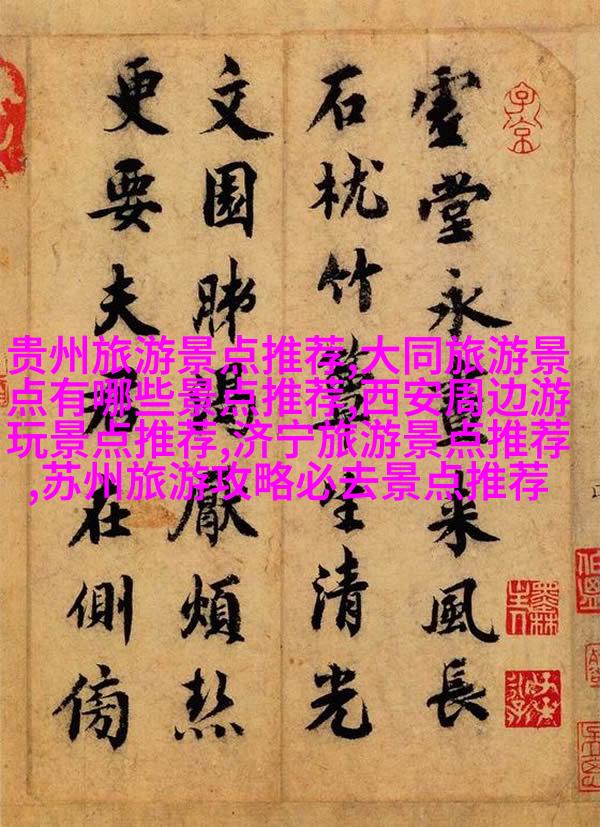 贵州旅游景点推荐,大同旅游景
点有哪些景点推荐,西安周边游
玩景点推荐,济宁旅游景点推荐
,苏州旅游攻略必去景点推荐
虛堂永晝来風長
石枕竹簟生清光
文園肺渴厭煩熱
更要夫君在側傍